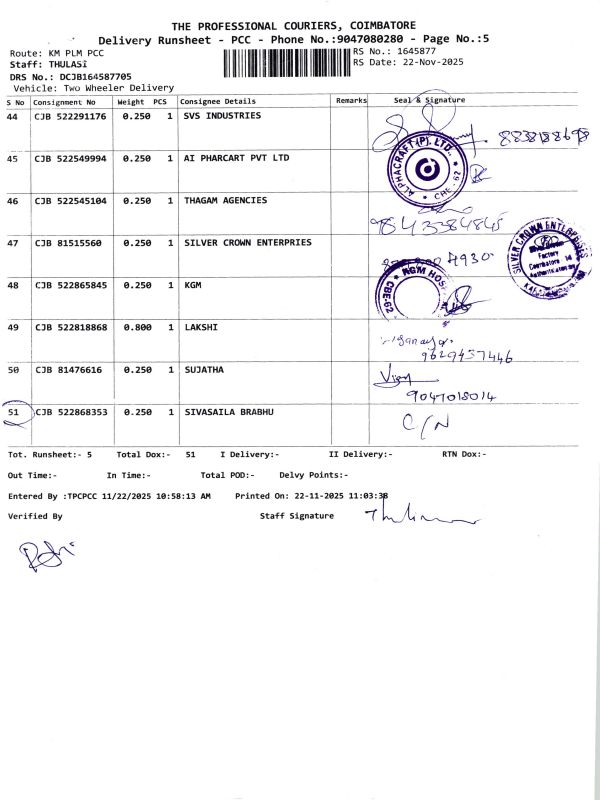 THE PROFESSIONAL COURIERS, COIMBATORE
Delivery Runsheet - PCC - Phone No.:9047080280 - Page No.:5
Route: KM PLM PCC RS No.: 1645877
Staff: THULASI RS Date: 22-Nov-2025
DRS No.: DCJB164587705
Vehicle: Two Wheeler Delivery
S No Consignment No Weight PCS Consignee Details Remarks Seal & Signature
44 CJB 522291176 0.250 1 SVS INDUSTRIES
45 CJB 522549994 0.250 1 AI PHARCART PVT LTD
ALPHACRAFT (P). LTD. * CHE-62 *
46 CJB 522545104 0.250 1 THAGAM AGENCIES
9843384845
47 CJB 81515560 0.250 1 SILVER CROWN ENTERPRIES
SILVER CROWN ENTERPRISES
Factory
48 CJB 522865845 0.250 1 KGM
CBE-62 * KGM
49 CJB 522818868 0.800 1 LAKSHI
9629437446
50 CJB 81476616 0.250 1 SUJATHA
Vijay
9047018014
51 CJB 522868353 0.250 1 SIVASAILA BRABHU C/N
Tot. Runsheet:- 5 Total Dox:- 51 I Delivery:- II Delivery:- RTN Dox:-
Out Time:- In Time:- Total POD:- Delvy Points:-
Entered By :TPCPCC 11/22/2025 10:58:13 AM Printed On: 22-11-2025 11:03:38
Verified By Staff Signature